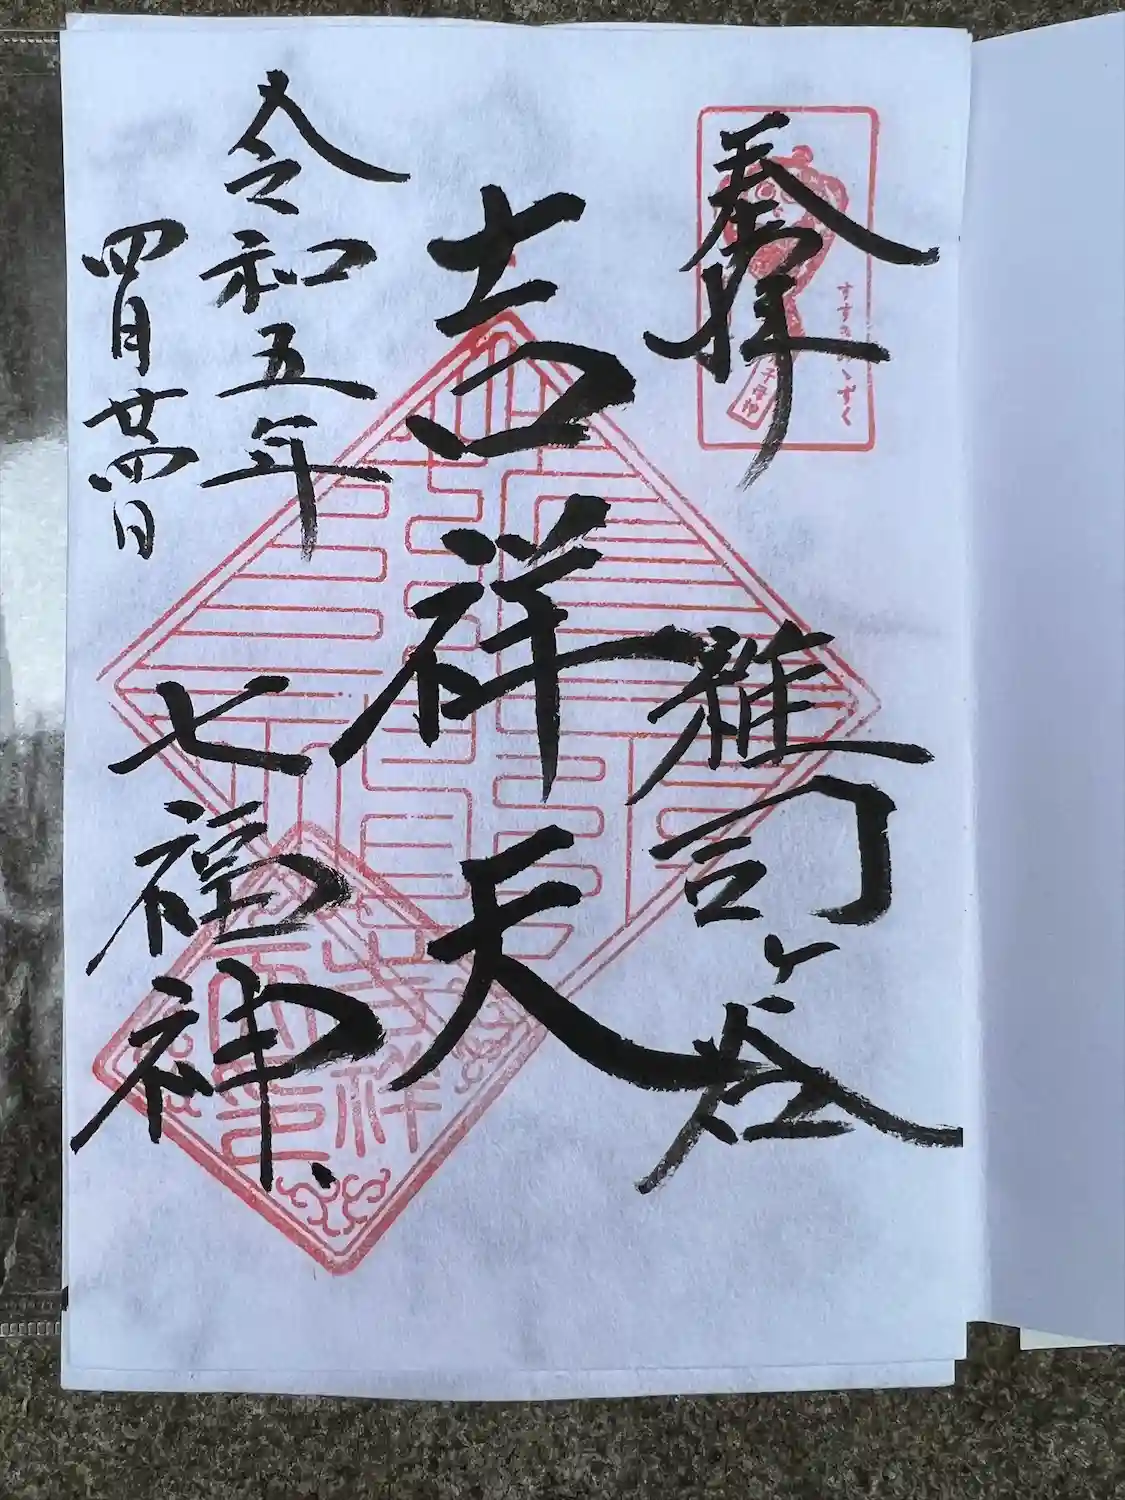 奉拝
雑司ヶ谷
すすきみゝずく
吉祥天
令和五年
四月廿四日
七福神
吉祥